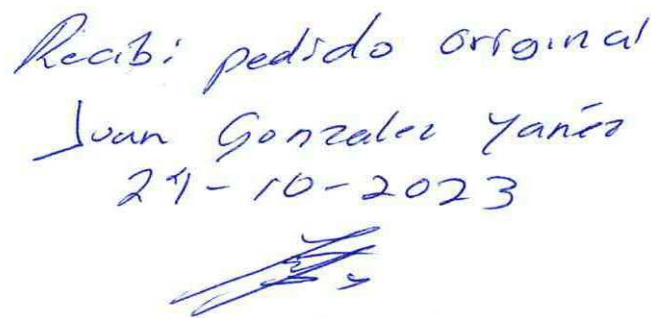 Recibi pedido original
Juan Gonzalez Yañez
24-10-2023